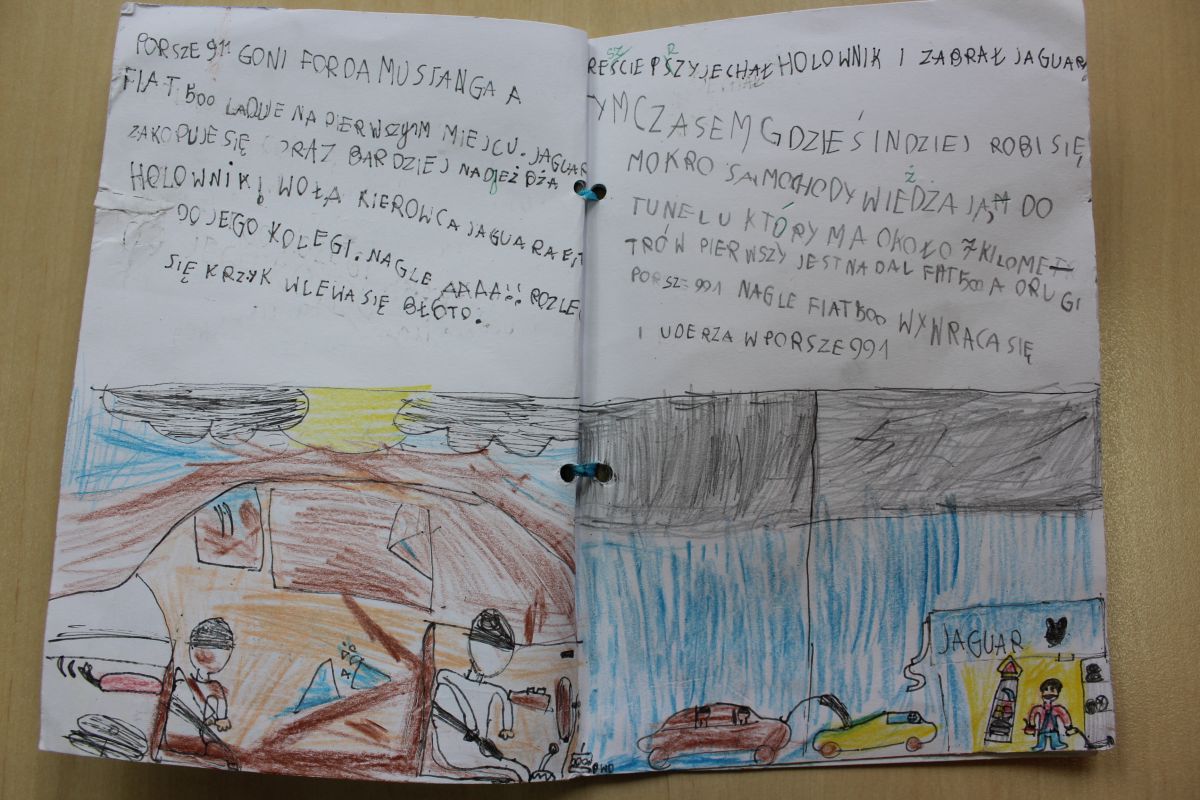 PORSZE 911 GONI FORDA MUSTANGA A
FIAT 500 LĄDUJE NA PIERWSZYM MIEJCU. JAGUAR
ZAKOPUJE SIĘ CORAZ BARDZIEJ NADJEŻDŻA
HOLOWNIK! WOŁA KIEROWCA JAGUARA
DO JEGO KOLEGI. NAGLE AAAA!! ROZLE
SIĘ KRZYK WLEWA SIĘ BŁOTO.
REŚCIE PSZYJECHAŁ HOLOWNIK I ZABRAŁ JAGUAR
TYMCZASEM GDZIEŚ INDZIEJ ROBI SIĘ
MOKRO SAMOCHODY WIEŻDŻAJĄ DO
TUNELU KTÓRY MA OKOŁO 7 KILOME
TRÓW PIERWSZY JEST NADAL FIAT 500 A DRUGI
PORSZE 991 NAGLE FIAT 500 WYWRACA SIĘ
I UDERZA W PORSZE 991
JAGUAR